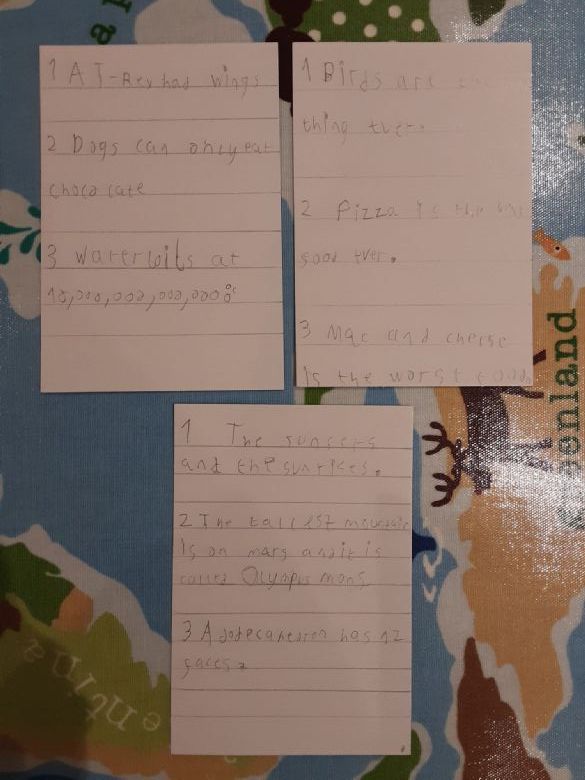 1 A T-Rex had wings
2 Dogs can only eat
choco late
3 Water boils at
10,000,000,000,000°c
1 Birds are the
thing ever.
2 Pizza is the
food ever.
3 Mac and cheese
Is the worst food
1 The sunsets
and the sunrises.
2 The tallest mountain
Is on mars and it is
called Olympus mons
3 A dodecahedron has 12
faces.
enland